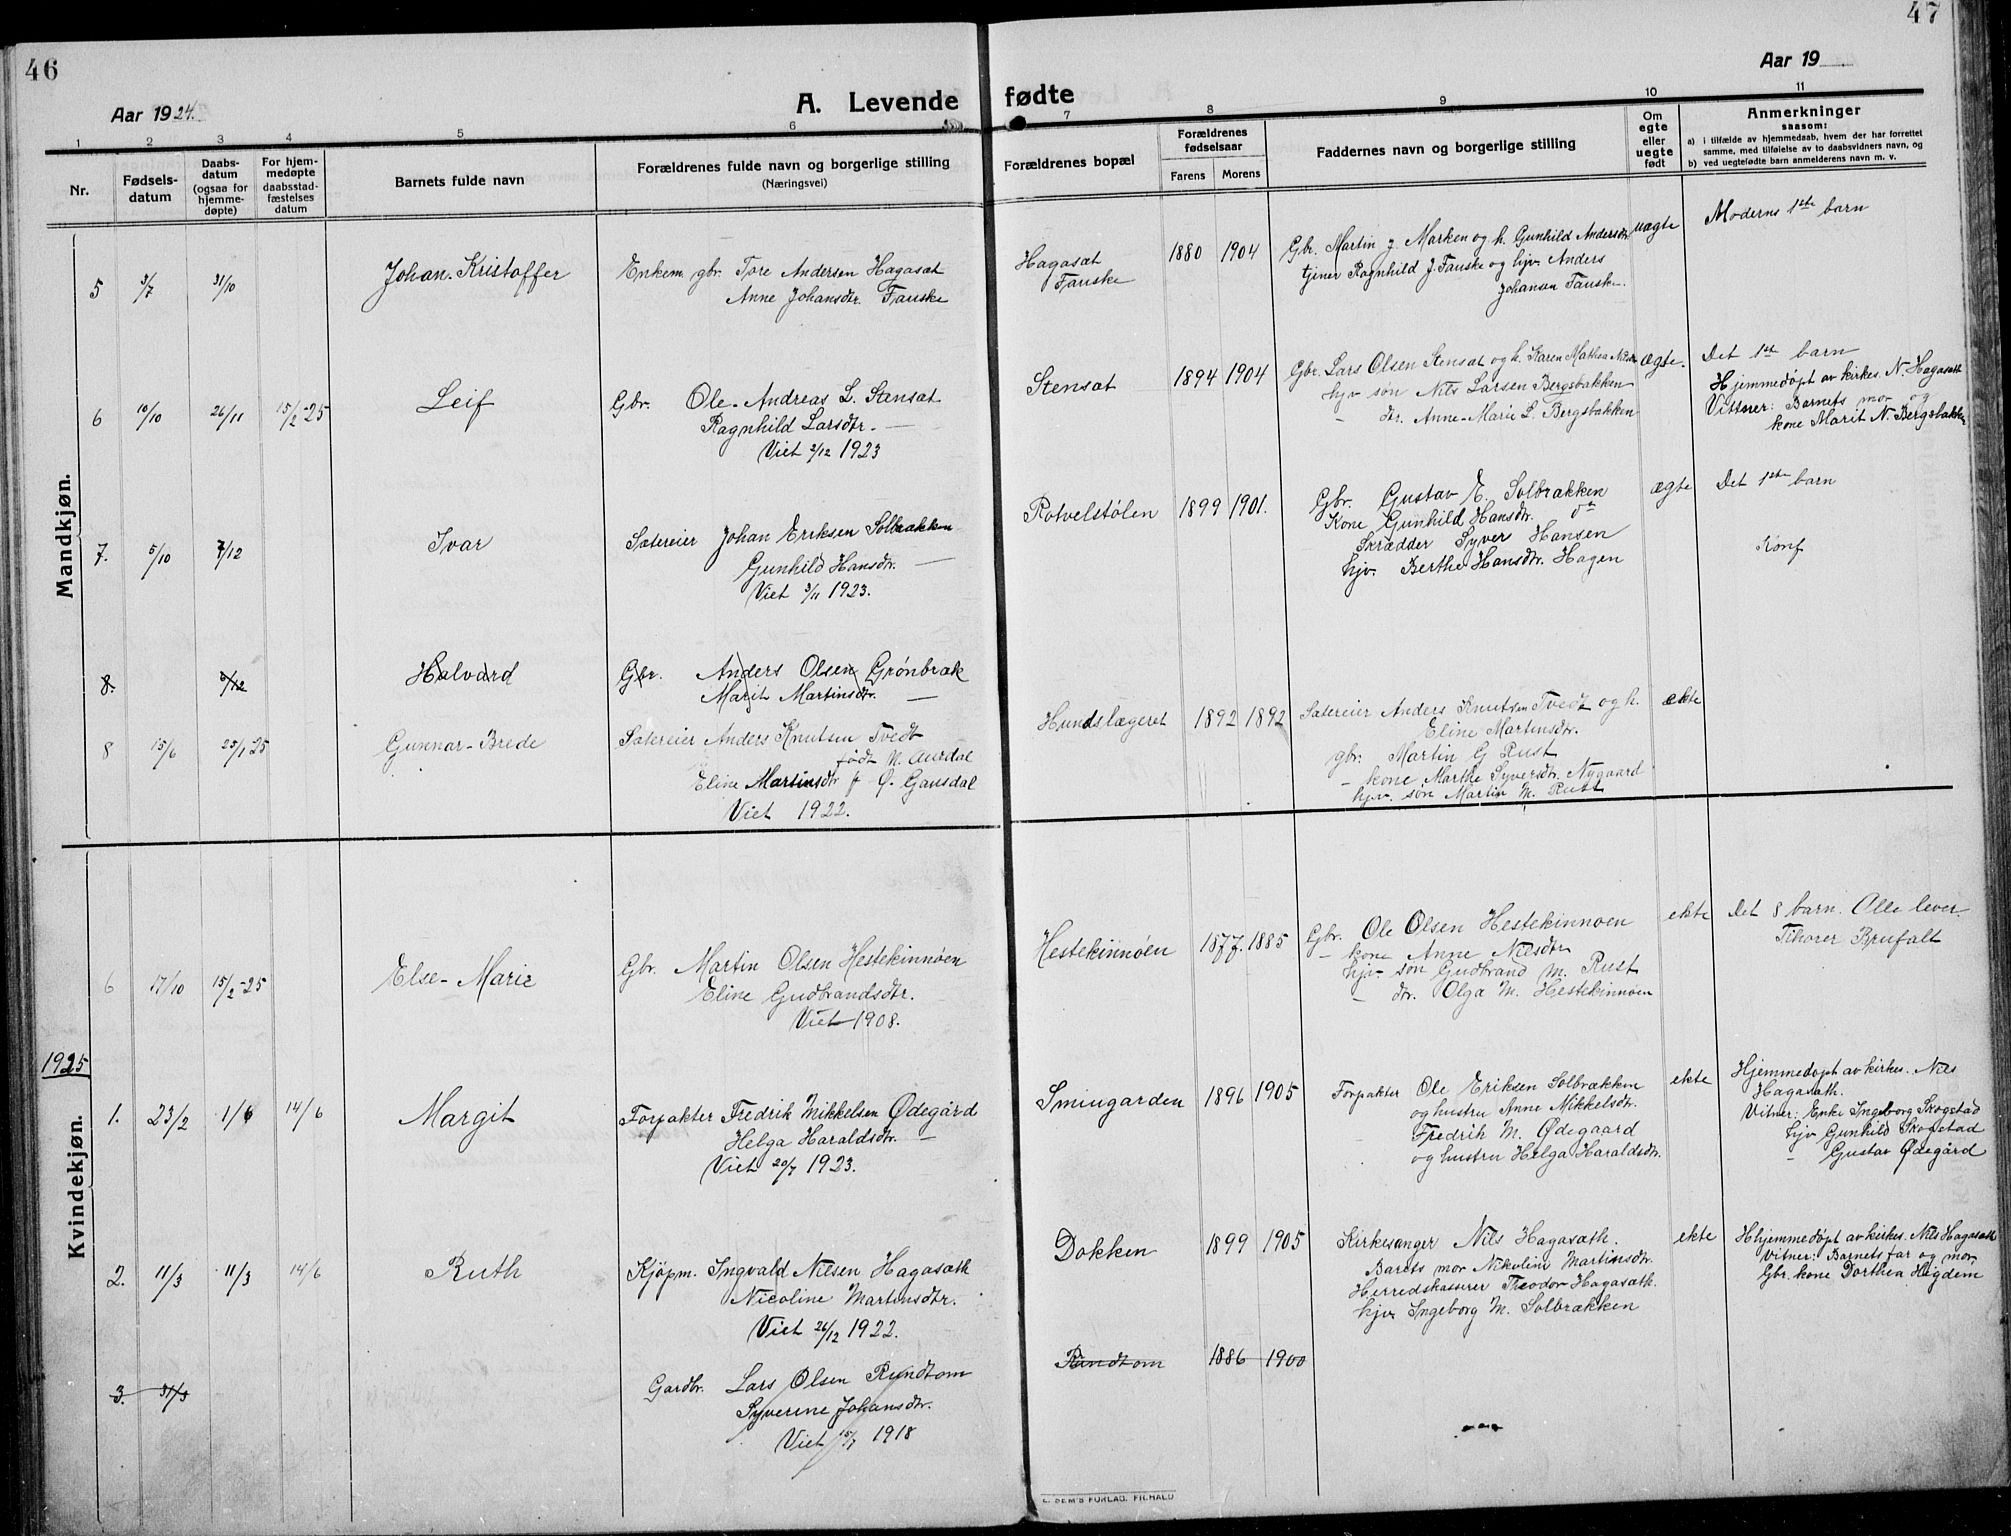 46
47
Aar 1924.
A. Levende fødte
Aar 19
1 2 3 4 5 6 7 8 9 10 11
Nr.
Fødsels-
datum
Daabs-
datum
(ogsaa for
hjemme-
døpte)
For hjem-
medøpte
daabsstad-
fæstelses
datum
Barnets fulde navn
Forældrenes fulde navn og borgerlige stilling
(Næringsvei)
Forældrenes bopæl
Forældrenes
fødselsaar
Farens Morens
Faddernes navn og borgerlige stilling
Om
egte
eller
uegte
født
Anmerkninger
saasom:
a) i tilfælde av hjemmedaab, hvem der har forrettet
samme, med tilføielse av to daabsvidners navn, og
b) ved uegtefødte barn anmelderens navn m. v.
Mandkjøn.
5 3/7 31/10
Johan-Kristoffer
Enkem. gbr. Tore Andersen Hagasat
Anne Johansdtr. Fauske
Hagasat
Fauske
1880 1904
Gbr. Martin J. Marken og h. Gunhild Andersdtr
tjener Ragnhild J. Fauske og hjv. Anders
Johansen Fauske.
uægte
Moderns 1ste barn
6 10/10 26/11 15/2-25
Leif
Gbr. Ole-Andreas L. Stensat
Ragnhild Larsdtr. —
Viet 2/12 1923
Stensat
1894 1904
Gbr. Lars Olsen Stensat og h. Karen Mathea Nilsdtr
hjv. søn Nils Larsen Bergsbakken
— dtr. Anne-Marie L. Bergsbakken
ægte.
Det 1ste barn
Hjemmedøpt av kirkes. N. Hagasath
Vittner: Barnets mor og
kone Marit N. Bergsbakken
7. 5/10 7/12
Ivar
Sætereier Johan Eriksen Solbrækken
Gunhild Hansdtr. —
Viet 3/11 1923.
Rotvelstølen
1899 1901.
Gbr. Gustav E. Solbrakken
Kone Gunhild Hansdtr. do
Skrædder Syver Hansen
hjv. Berthe Hansdtr. Hagen
ægte
Det 1ste barn
Konf
8. 7/12
Halvard
Gbr. Anders Olsen Grønbræk
Marit Martinsdtr. —
8 15/6 25/1 25
Gunnar-Brede
Sætereier Anders Knutsen Tvedt
født N. Aurdal
Eline Martinsdtr f Ø. Gausdal
Viet 1922.
Hundslægeret
1892 1892
Sætereier Anders Knutsen Tvedt og h.
Eline Martinsdtr.
gbr. Martin G Rust
— kone Marthe Syversdtr. Nygaard
hjv. søn Martin M. Rust
ekte
Kvindekjøn.
6 17/10 15/2-25
Else-Marie
Gbr. Martin Olsen Hestekinnøen
Eline Gudbrandsdtr.
Viet 1908.
Hestekinnøen
1877. 1885
Gbr. Ole Olsen Hestekinnøen
— kone Anne Nilsdtr
hjv. søn Gudbrand M. Rust
— dtr. Olga M. Hestekinnøen
ekte
Det 8 barn. Alle lever
Tihorer Brufalt
1925
1. 23/2 1/6 14/6
Margit
Forpakter Fredrik Mikkelsen Ødegård
Helga Haraldsdtr. —
Viet 20/7 1923.
Smiugarden
1896 1905
Forpakter Ole Eriksen Solbrækken
og hustru Anne Mikkelsdtr.
Fredrik M. Ødegaard
og hustru Helga Haraldsdtr.
ekte
Hjemmedøpt av kirkes. Nils
Hagasath.
Vitner: Enke Ingeborg Skogstad
hjv Gunhild Skogstad
— Gustav Ødegård
2. 11/3 11/3 14/6
Ruth
Kjøpm. Ingvald Nilsen Hagasath
Nicoline Martinsdtr.
Viet 26/12 1922.
Dokken
1899 1905
Kirkesanger Nils Hagasath.
Barets mor Nikoline Martinsdtr.
Herredskasserer Theodor Hagasath.
hjv Ingeborg M. Solbrækken
ekte
Hhjemmedøpt av kirkes. Nils Hagasath
Vitner: Barnets far og mor
Gbr. kone Dorthea Høgdem
3. 31/3
Gardbr. Lars Olsen Rundtom
Syverine Johansdtr.
Viet 15/7 1918
Rundtom
1886 1900
E. SEM'S FORLAG. FR.HALD